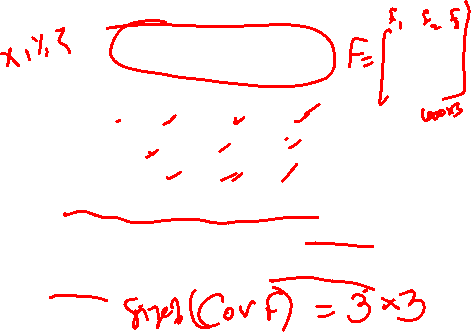 x, y, z
F = [ F₁ F₂ F₃ ]
1000×3
size(Cov F) = 3×3